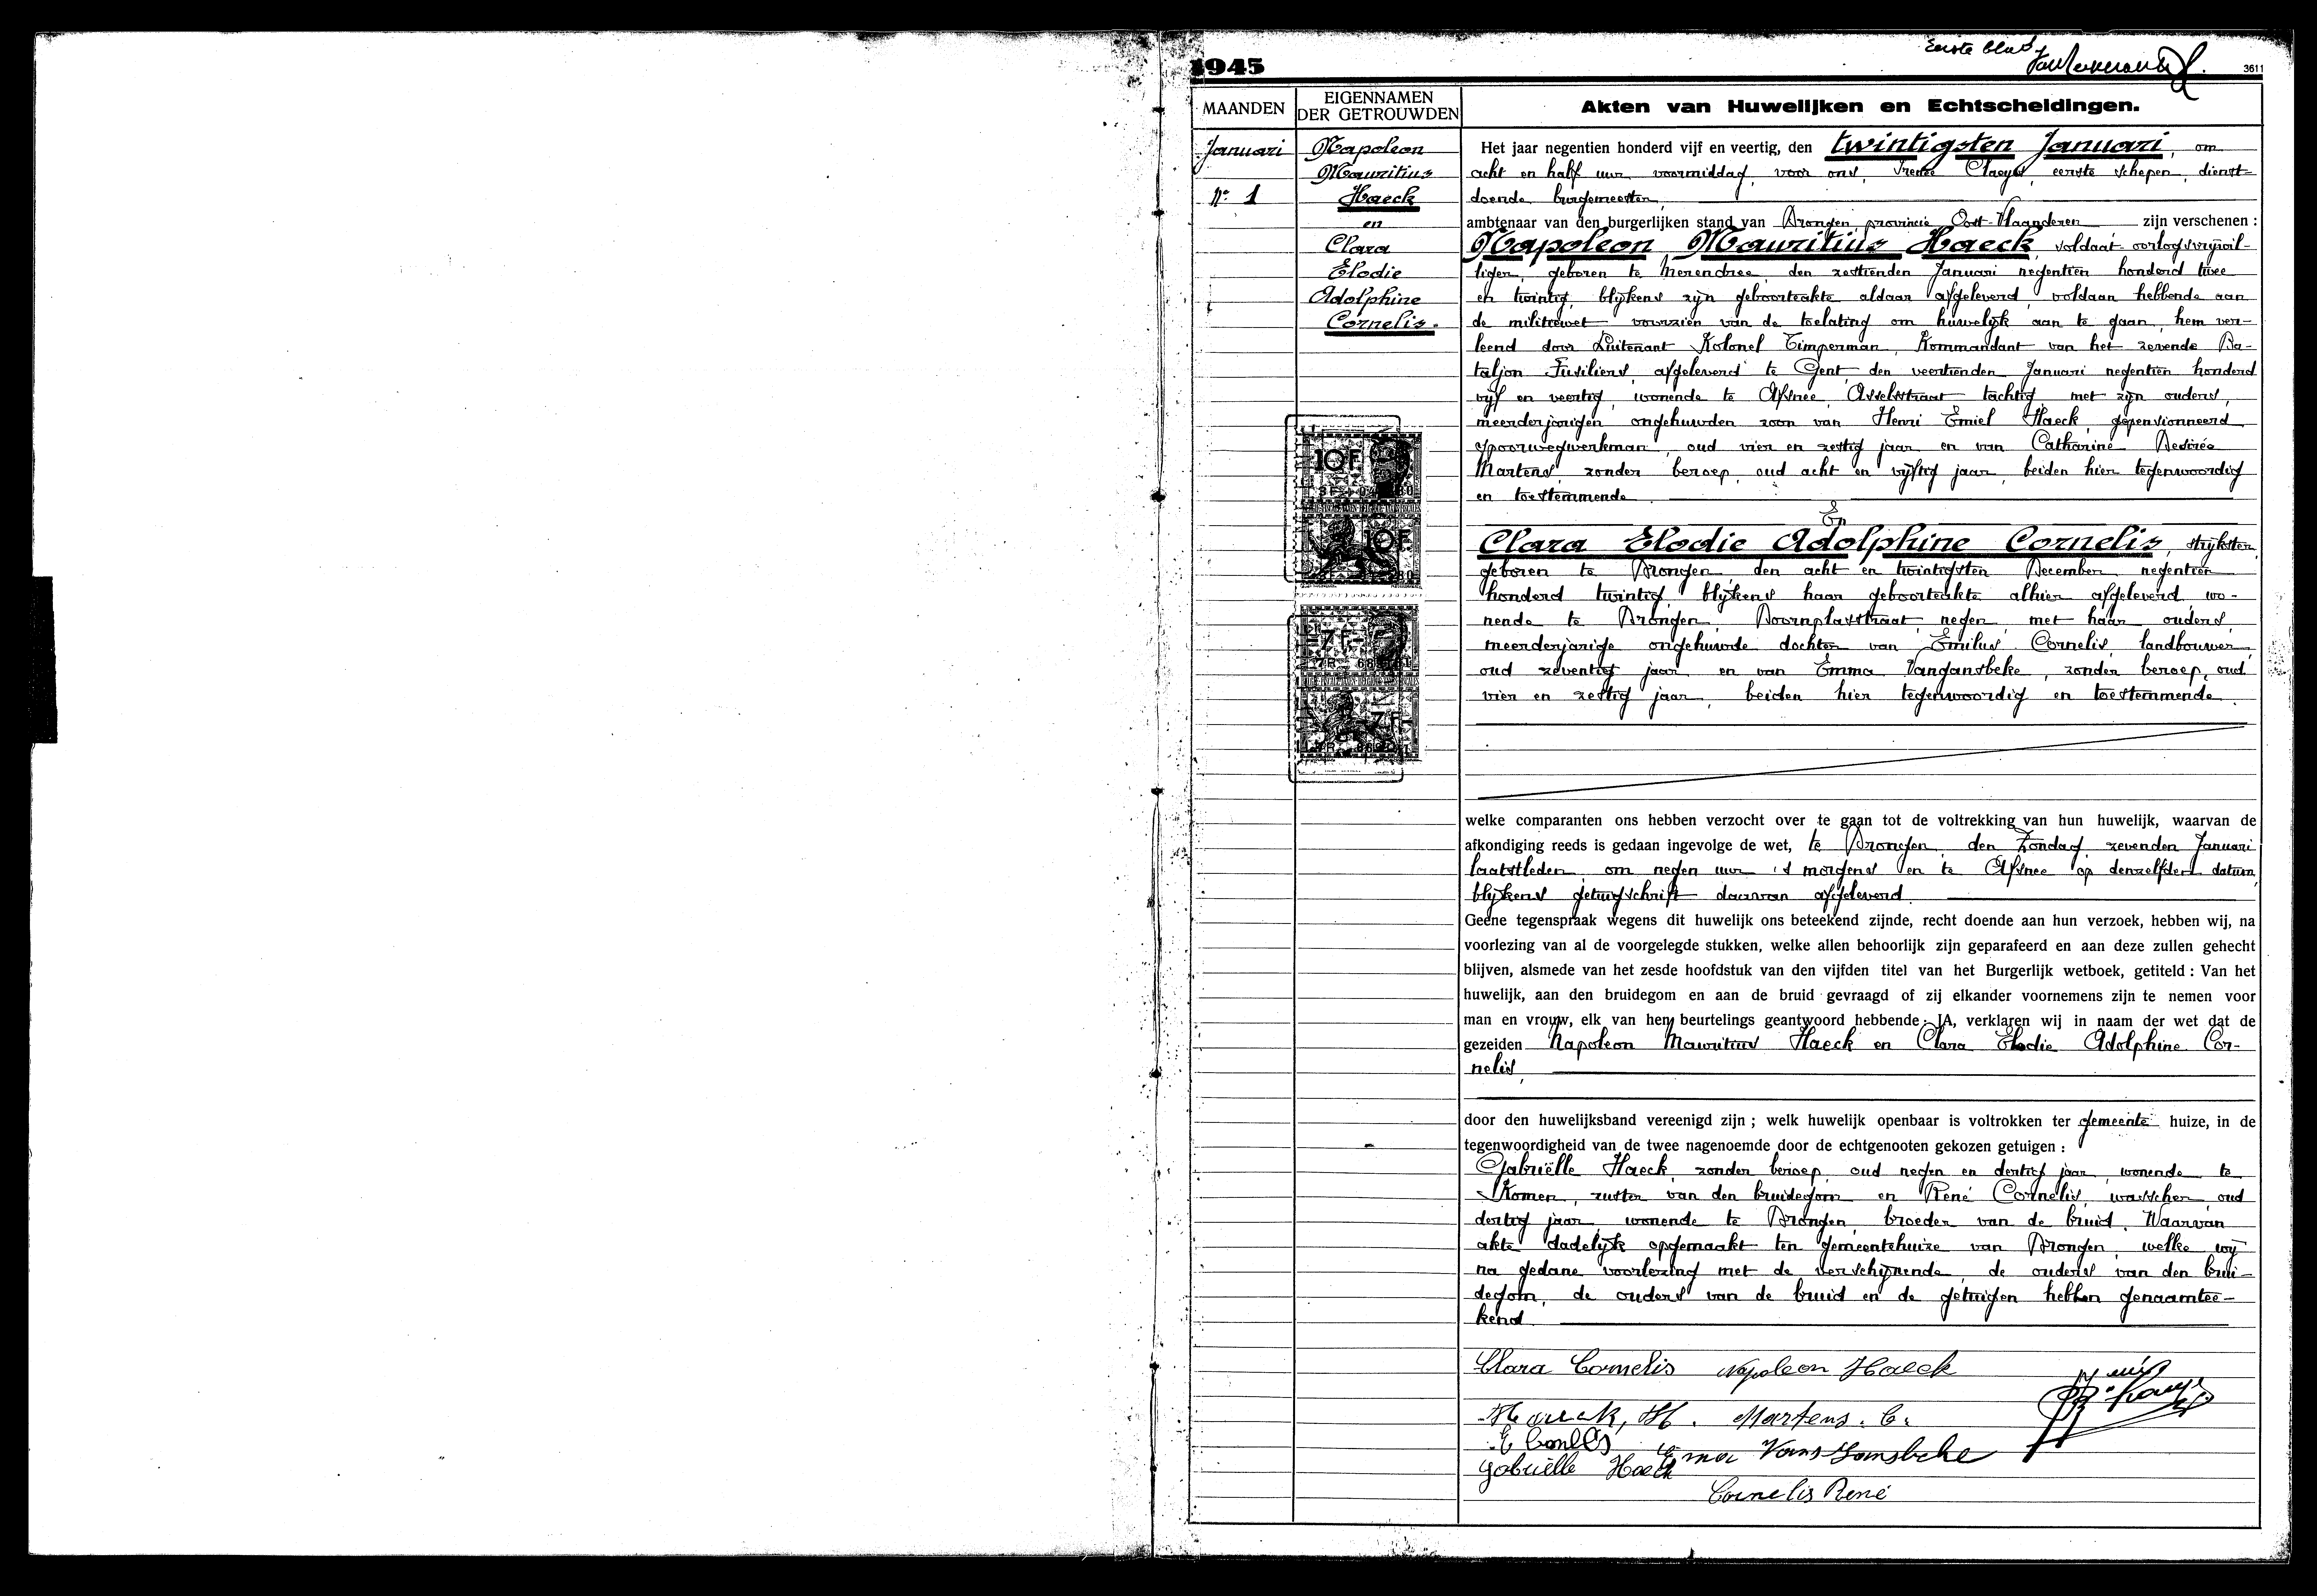 Eerste blad
1945
3611
MAANDEN
EIGENNAMEN DER GETROUWDEN
Akten van Huwelijken en Echtscheidingen.
Januari
Nr 1
Napoleon
Mauritius
Haeck
en
Clara
Elodie
Adolphine
Cornelis.
Het jaar negentien honderd vijf en veertig, den twintigsten Januari, om
acht en half uur voormiddag, voor ons, Irenée Claeys, eerste schepen, dienst-
doende burgemeester,
ambtenaar van den burgerlijken stand van Drongen, provincie Oost-Vlaanderen zijn verschenen :
Napoleon Mauritius Haeck, soldaat-oorlogsvrijwil-
liger, geboren te Merendree den zestienden Januari negentien honderd twee
en twintig, blijkens zijn geboorteakte aldaar afgeleverd, voldaan hebbende aan
de militiewet voorzien van de toelating om huwelijk aan te gaan, hem ver-
leend door Luitenant Kolonel Timperman, Kommandant van het zevende Ba-
taljon Fusiliers, afgeleverd te Gent, den veertienden Januari negentien honderd
vijf en veertig, wonende te Afsnee, Asselsstraat tachtig, met zijn ouders,
meerderjarigen ongehuwden zoon van Henri Emiel Haeck, gepensionneerd
spoorwegwerkman, oud vier en zestig jaar en van Catharine Desirée
Martens, zonder beroep, oud acht en vijftig jaar, beiden hier tegenwoordig
en toestemmende
En
Clara Elodie Adolphine Cornelis, strijkster,
geboren te Drongen, den acht en twintigsten December negentien
honderd twintig, blijkens haar geboorteakte alhier afgeleverd, wo-
nende te Drongen, Doornplasstraat, negen, met haar ouders,
meerderjarige ongehuwde dochter van Emilus Cornelis, landbouwer,
oud zeventig jaar en van Emma Vangansbeke, zonder beroep, oud
vier en zestig jaar, beiden hier tegenwoordig en toestemmende.
10F
10F
7F
7F
welke comparanten ons hebben verzocht over te gaan tot de voltrekking van hun huwelijk, waarvan de
afkondiging reeds is gedaan ingevolge de wet, te Drongen, den Zondag zevenden Januari
laatstleden, om negen uur 's morgens en te Afsnee op denzelfden datum,
blijkens getuigschrift daarvan afgeleverd.
Geene tegenspraak wegens dit huwelijk ons beteekend zijnde, recht doende aan hun verzoek, hebben wij, na
voorlezing van al de voorgelegde stukken, welke allen behoorlijk zijn geparafeerd en aan deze zullen gehecht
blijven, alsmede van het zesde hoofdstuk van den vijfden titel van het Burgerlijk wetboek, getiteld : Van het
huwelijk, aan den bruidegom en aan de bruid gevraagd of zij elkander voornemens zijn te nemen voor
man en vrouw, elk van hen beurtelings geantwoord hebbende : JA, verklaren wij in naam der wet dat de
gezeiden Napoleon Mauritius Haeck en Clara Elodie Adolphine Cor-
nelis,
door den huwelijksband vereenigd zijn ; welk huwelijk openbaar is voltrokken ter gemeente huize, in de
tegenwoordigheid van de twee nagenoemde door de echtgenooten gekozen getuigen :
Gabriëlle Haeck, zonder beroep, oud negen en dertig jaar, wonende te
Komen, zuster van den bruidegom en René Cornelis, wasscher, oud
dertig jaar, wonende te Drongen, broeder van de bruid. Waarvan
akte dadelijk opgemaakt ten gemeentehuize van Drongen, welke wij
na gedane voorlezing met de verschijnende, de ouders van den brui-
degom, de ouders van de bruid en de getuigen hebben genaamtee-
kend.
Clara Cornelis Napoleon Haeck
Haeck, H. Martens. C.
Gabriëlle Haeck
Cornelis René